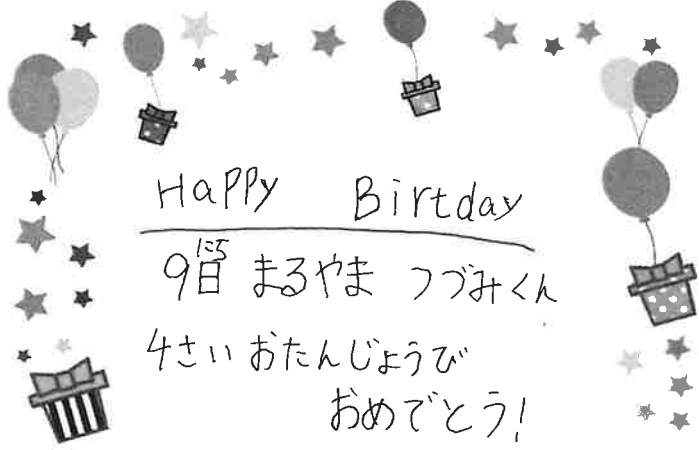 Happy Birtday
9日 まるやま つづみくん
にち
4さい おたんじょうび
おめでとう!